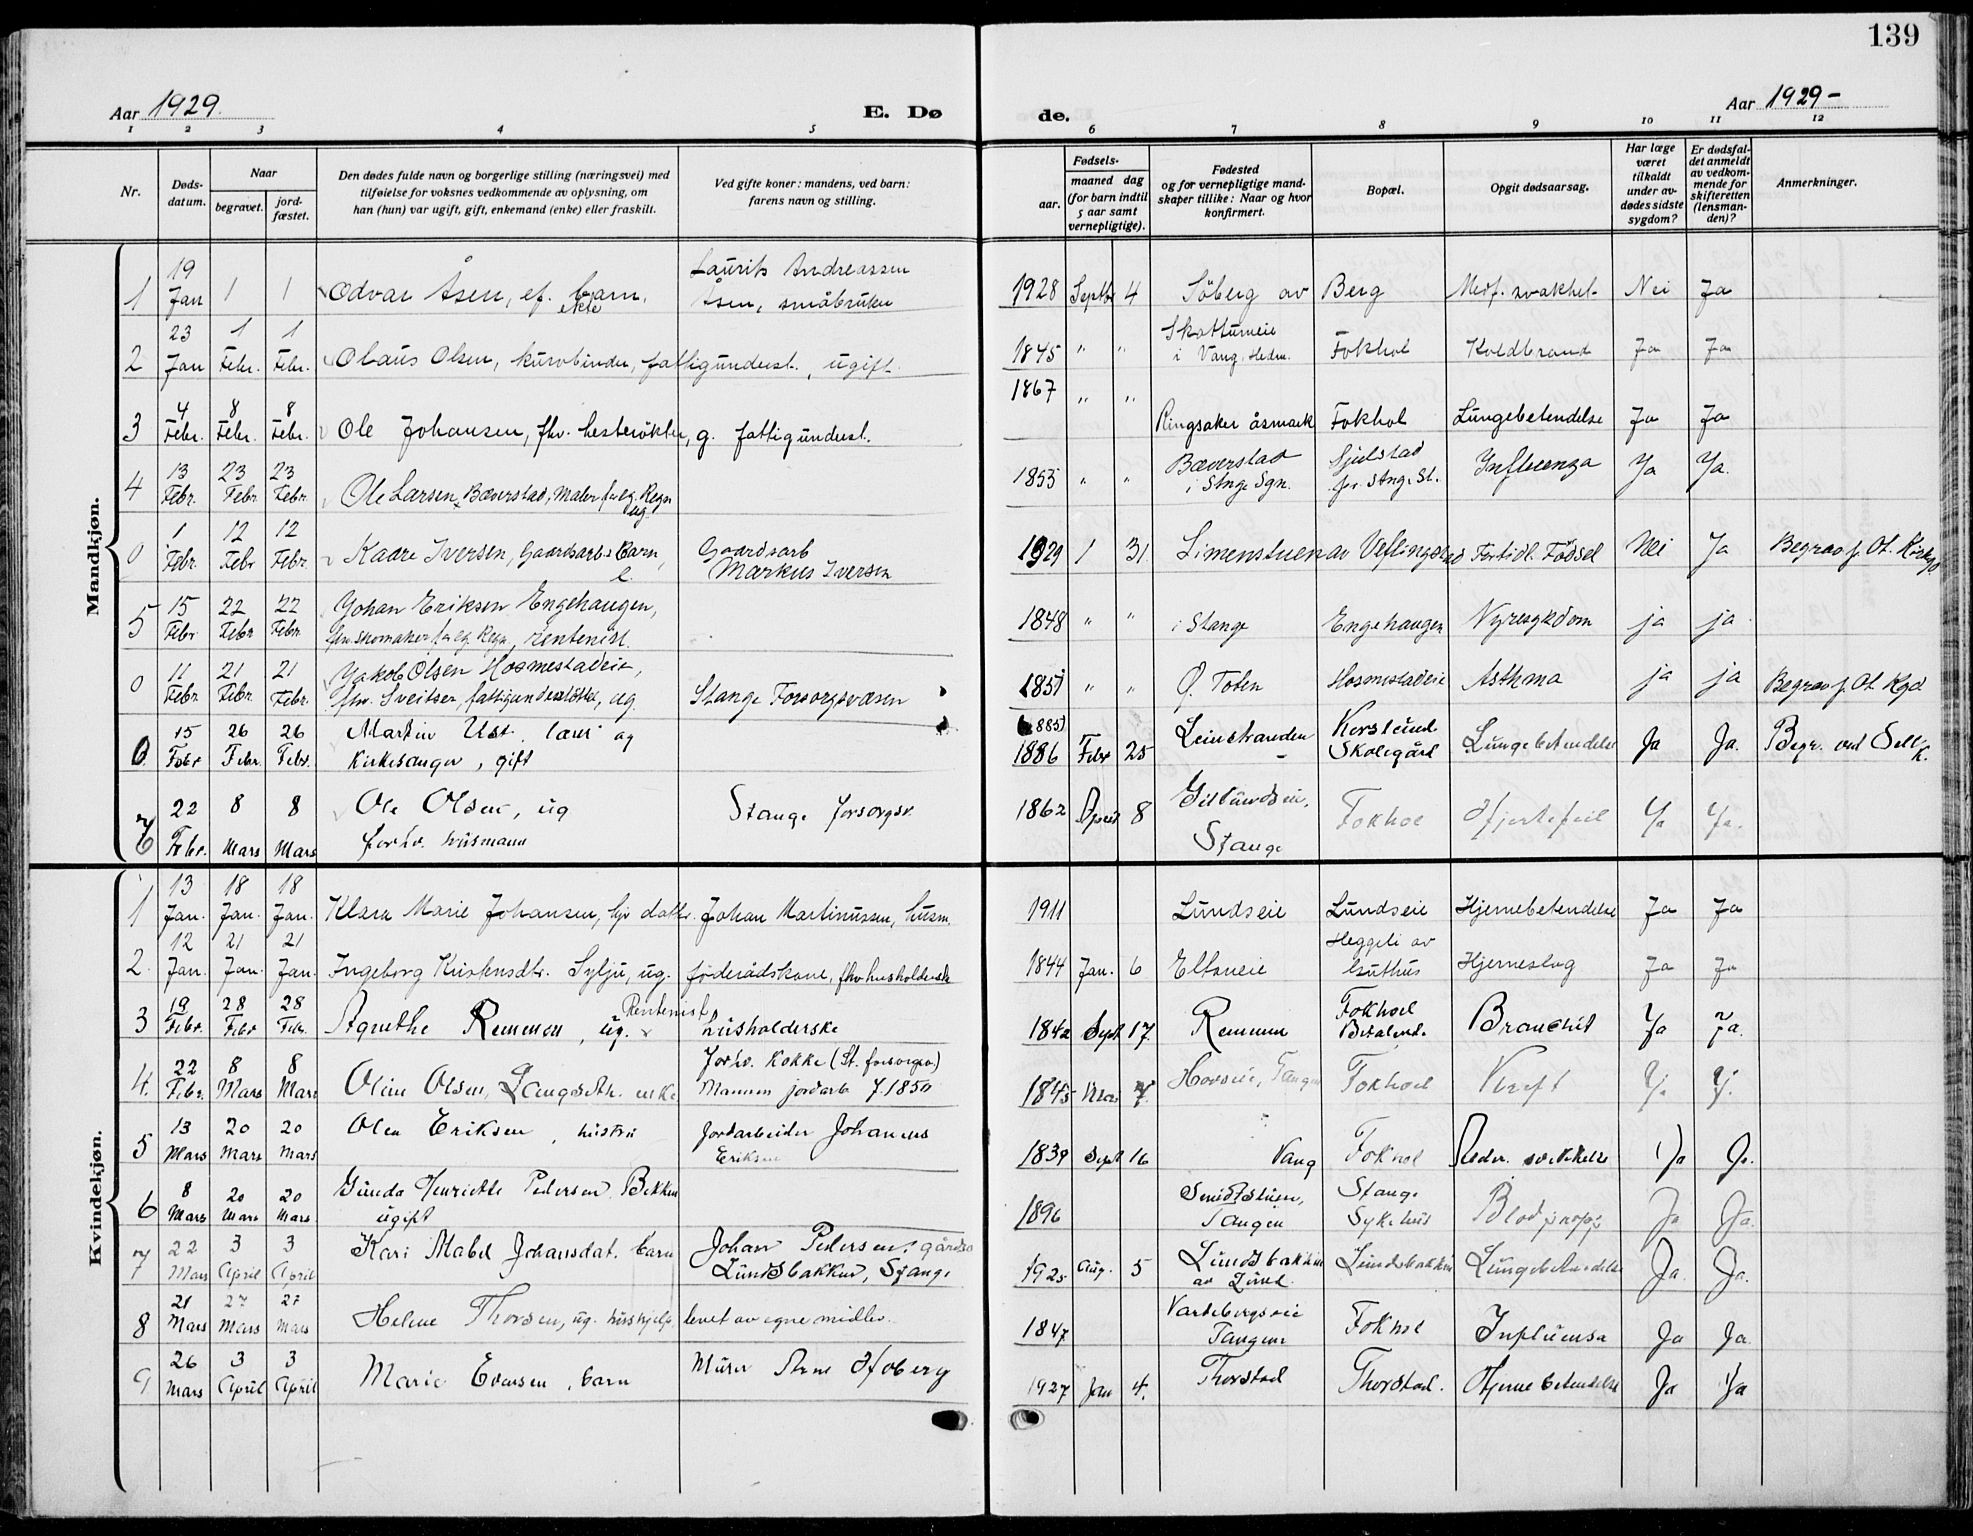 139
Aar 1929.
E. Dø
de.
Aar 1929 –
1 2 3 4 5 6 7 8 9 10 11 12
Nr.
Døds-
datum.
Naar
begravet.
jord-
fæstet.
Den dødes fulde navn og borgerlige stilling (næringsvei) med
tilføielse for voksnes vedkommende av oplysning, om
han (hun) var ugift, gift, enkemand (enke) eller fraskilt.
Ved gifte koner: mandens, ved barn:
farens navn og stilling.
Fødsels-
aar.
maaned dag
(for barn indtil
5 aar samt
vernepligtige).
Fødested
og for vernepligtige mand-
skaper tillike: Naar og hvor
konfirmert.
Bopæl.
Opgit dødsaarsag.
Har læge
været
tilkaldt
under av-
dødes sidste
sygdom?
Er dødsfal-
det anmeldt
av vedkom-
mende for
skifteretten
(lensman-
den)?
Anmerkninger.
Mandkjøn.
1 19 Jan 1 1 Odvar Åsen, ef. barn, ekte Laurits Andreassen Åsen, småbruker 1928 Septbr 4 Söberg av Berg Medf. svakhet Nei Ja
2 23 Jan 1 Febr. 1 Febr. Olaus Olsen, kurvbinder, fattigunderst., ugift. 1845 " " i Vang, Hedm. Fokhol Koldbrand Ja Ja
3 4 Febr. 8 Febr. 8 Febr. Ole Johansen, fhv. hesterökter, g. fattigunderst. 1867 " " Ringsaker åsmark Fokhol Lungebetendelse Ja Ja
4 13 Febr. 23 Febr 23 Febr. Ole Larsen Bæverstad, Maler for eg. Regn ug. 1855 " " Bæverstad i Stnge Sgn. Gjelstad pr. Stng. St. Influenza Ja Ja.
0 1 Febr. 12 Febr 12 Febr. Kaare Iversen, Gaardsarb.s Barn, e. Gaardsarb Markus Iversen 1929 1 31 Limenstuen av Veflingstad Fortidl. Födsel Nei Ja Begrav. p. Ot. Kirkgd.
5 15 Febr 22 Febr 22 Febr. Johan Eriksen Engehaugen, fhv. skomaker for eg. Regn, rentenist. 1848 " " i Stange Engehaugen Nyresykdom ja ja
0 11 Febr 21 Febr 21 Febr. Jakob Olsen Hosmestadeie, fhv. Sveitser, fattigunderstöttet, ug. Stange Forsorgsvæsen 1851 " " Ø. Toten Hosmestadeie Asthma ja ja Begrav p. Ot Kgd
6. 15 Febr 26 Febr. 26 Febr. Martin Ust, lærer og Kirkesanger, gift 1886 Febr 25 Leinstranden Skolegård Lungebetendelse Ja Ja. Begr. ved Sell K.
7 22 Febr. 8 Mars 8 Mars Ole Olsen, ug forhv. husmann Stange forsorgsv. 1862 April 8 Stange Fokhol Hjertefeil Ja Ja.
Kvindekjøn.
1 13 Jan. 18 Jan. 18 Jan. Klara Marie Johansen, hjv datter. Johan Martinussen, husm. 1911 Lundseie Lundseie Hjernebetendelse Ja Ja
2. 12 Jan. 21 Jan. 21 Jan. Ingeborg Kristensdtr. Sylju, ug. föderådskone, fhv husholderske 1844 Jan. 6 Eltsneie Heggeli av Guthus Hjerneslag Ja Ja
3 19 Febr. 28 Febr 28 Febr. Agnethe Remmen, ug. Rentenist, husholderske 1842 Sept 17. Remmen Fokhoel Betalend. Bronchit Ja Ja.
4. 22 Febr. 8 Mars 8 Mars Oline Olsen, Langseth. enke Forhv. Kokke (St. forsorgsv.) Mannen jordarb. f 1850 1845 Mai 7. Hovseie, Tangen Fokhoel Kreft
5 13 Mars 20 Mars 20 Mars Olea Eriksen, hustru Jordarbeider Johannes Eriksen 1839 Sept 16 Vang Fokhol Alder. svekkelse Ja Ja.
6 8 Mars 20 Mars 20 Mars Gunda Henriette Pedersen Bekken ugift 1896 Smidstuen, Tangen Stange Sykehus Blodpropp Ja Ja.
7 22 Mars 3 April 3 April Kari Mabel Johansdat. barn Johan Pedersen, gårdsa Lundsbakken, Stange 1925 Aug. 5 Lundsbakken av Lund. Lundsbakken Lungebetendelse Ja. Ja.
8 21 Mars 27 Mars 27 Mars Helene Thorsen, ug. hushjelp, levet av egne midler. 1847 Vardebergseie Tangen Fokhol Influensa Ja Ja.
9 26 Mars 3 April 3 April Marie Evensen, barn Murer Arne Hoberg 1927 Jan 4. Thorstad Thorstad. Hjernebetendelse Ja Ja